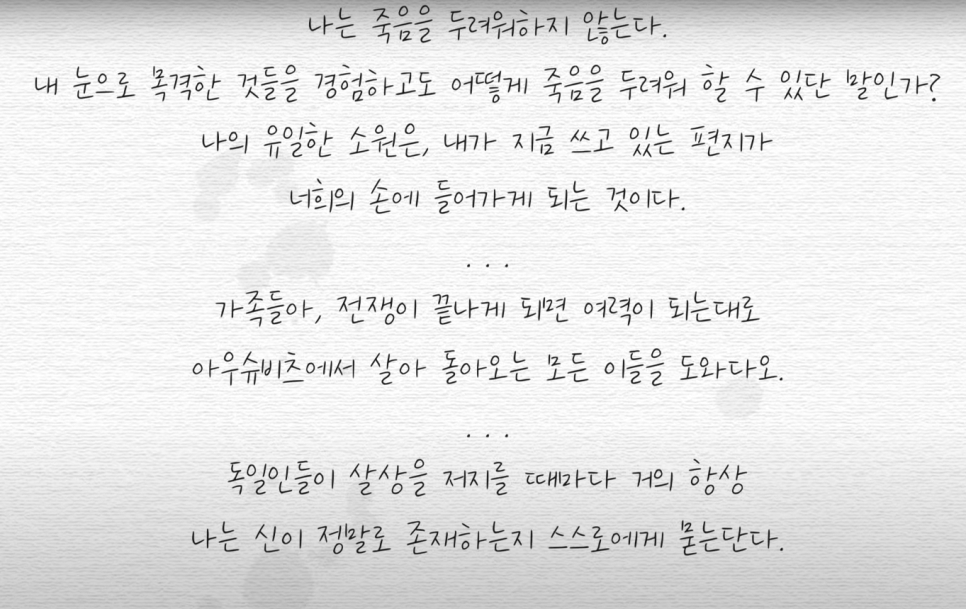 나는 죽음을 두려워하지 않는다.
내 눈으로 목격한 것들을 경험하고도 어떻게 죽음을 두려워 할 수 있단 말인가?
나의 유일한 소원은, 내가 지금 쓰고 있는 편지가
너희의 손에 들어가게 되는 것이다.
...
가족들아, 전쟁이 끝나게 되면 여력이 되는대로
아우슈비츠에서 살아 돌아오는 모든 이들을 도와다오.
...
독일인들이 살상을 저지를 때마다 거의 항상
나는 신이 정말로 존재하는지 스스로에게 묻는단다.